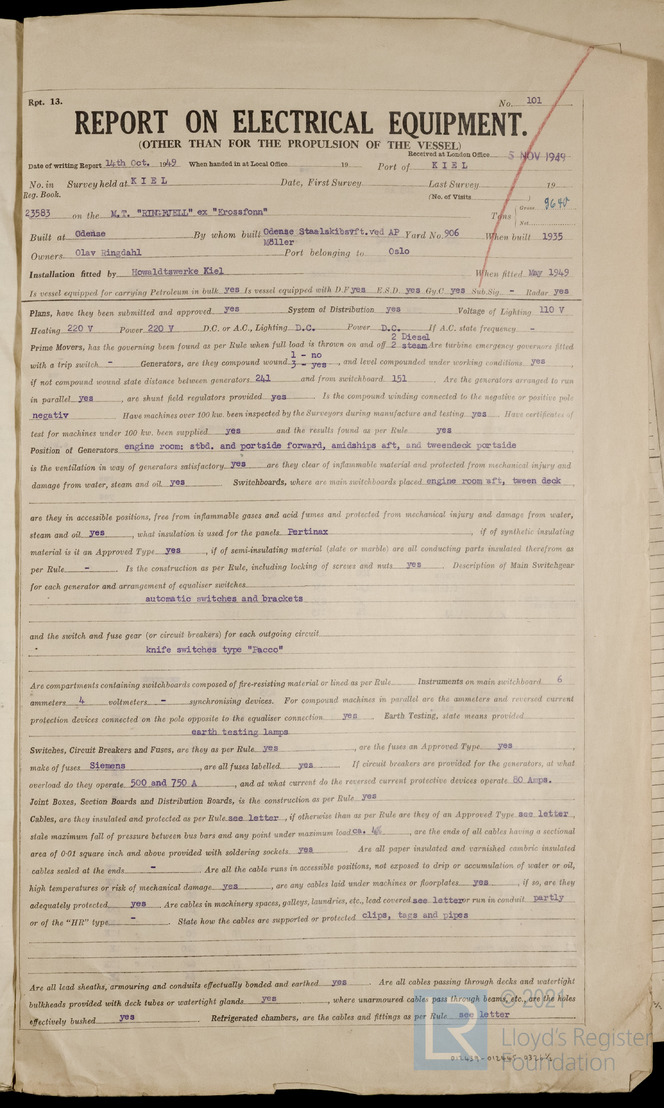 Rpt. 13.
No. 101
REPORT ON ELECTRICAL EQUIPMENT.
(OTHER THAN FOR THE PROPULSION OF THE VESSEL)
Received at London Office 5 NOV 1949
Date of writing Report 14th Oct. 1949 When handed in at Local Office 19 Port of KIEL
No. in Survey held at KIEL Date, First Survey Last Survey 19
Reg. Book. (No. of Visits )
23583 on the M.T. "RINGFJELL" ex "Krossfonn" Tons Gross 9640
Net
Built at Odense By whom built Odense Staalskibsvft.ved AP Yard No. 906 When built 1935
Möller
Owners Olav Ringdahl Port belonging to Oslo
Installation fitted by Howaldtswerke Kiel When fitted May 1949
Is vessel equipped for carrying Petroleum in bulk yes Is vessel equipped with D.F. yes E.S.D. yes Gy.C. yes Sub.Sig. - Radar yes
Plans, have they been submitted and approved yes System of Distribution yes Voltage of Lighting 110 V
Heating 220 V Power 220 V D.C. or A.C., Lighting D.C. Power D.C. If A.C. state frequency -
2 Diesel
Prime Movers, has the governing been found as per Rule when full load is thrown on and off 2 steam Are turbine emergency governors fitted
1 - no
with a trip switch - Generators, are they compound wound 3 - yes, and level compounded under working conditions yes,
if not compound wound state distance between generators 241 and from switchboard 151 Are the generators arranged to run
in parallel yes, are shunt field regulators provided yes Is the compound winding connected to the negative or positive pole
negativ Have machines over 100 kw. been inspected by the Surveyors during manufacture and testing yes Have certificates of
test for machines under 100 kw. been supplied yes and the results found as per Rule yes
Position of Generators engine room: stbd. and portside forward, amidships aft, and tweendeck portside
is the ventilation in way of generators satisfactory yes are they clear of inflammable material and protected from mechanical injury and
damage from water, steam and oil yes Switchboards, where are main switchboards placed engine room aft, tween deck
are they in accessible positions, free from inflammable gases and acid fumes and protected from mechanical injury and damage from water,
steam and oil yes, what insulation is used for the panels Pertinax, if of synthetic insulating
material is it an Approved Type yes, if of semi-insulating material (slate or marble) are all conducting parts insulated therefrom as
per Rule - Is the construction as per Rule, including locking of screws and nuts yes Description of Main Switchgear
for each generator and arrangement of equaliser switches
automatic switches and brackets
and the switch and fuse gear (or circuit breakers) for each outgoing circuit
knife switches type "Pacco"
Are compartments containing switchboards composed of fire-resisting material or lined as per Rule Instruments on main switchboard 6
ammeters 4 voltmeters - synchronising devices. For compound machines in parallel are the ammeters and reversed current
protection devices connected on the pole opposite to the equaliser connection yes Earth Testing, state means provided
earth testing lamps
Switches, Circuit Breakers and Fuses, are they as per Rule yes, are the fuses an Approved Type yes,
make of fuses Siemens, are all fuses labelled yes If circuit breakers are provided for the generators, at what
overload do they operate 500 and 750 A, and at what current do the reversed current protective devices operate 80 Amps.
Joint Boxes, Section Boards and Distribution Boards, is the construction as per Rule yes
Cables, are they insulated and protected as per Rule see letter, if otherwise than as per Rule are they of an Approved Type see letter,
state maximum fall of pressure between bus bars and any point under maximum load ca. 4%, are the ends of all cables having a sectional
area of 0·01 square inch and above provided with soldering sockets yes Are all paper insulated and varnished cambric insulated
cables sealed at the ends - Are all the cable runs in accessible positions, not exposed to drip or accumulation of water or oil,
high temperatures or risk of mechanical damage yes, are any cables laid under machines or floorplates yes, if so, are they
adequately protected yes Are cables in machinery spaces, galleys, laundries, etc., lead covered see letter or run in conduit partly
or of the "HR" type - State how the cables are supported or protected clips, tags and pipes
Are all lead sheaths, armouring and conduits effectually bonded and earthed yes Are all cables passing through decks and watertight
bulkheads provided with deck tubes or watertight glands yes, where unarmoured cables pass through beams, etc., are the holes
effectively bushed yes Refrigerated chambers, are the cables and fittings as per Rule see letter
© 2021
LR
Lloyd's Register
Foundation